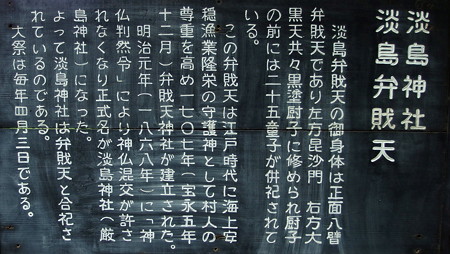 淡島神社
淡島弁賎天
淡島弁賎天の御身体は正面八臂
弁賎天であり左方毘沙門 右方大
黒天共々黒塗厨子に修められ厨子
の前には二十五童子が併祀されて
いる。
この弁賎天は江戸時代に海上安
穏漁業隆栄の守護神として村人の
尊重を高め一七〇七年(宝永五年
十二月)弁賎天神社が建立された。
明治元年(一八六八年)に「神
仏判然令」により神仏混交が許さ
れなくなり正式名が淡島神社(厳
島神社)になった。
よって淡島神社は弁賎天と合祀さ
れているのである。
大祭は毎年四月三日である。